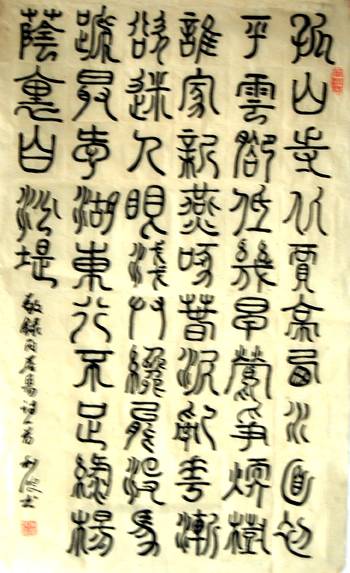 孤山寺北賈亭西水面初
平雲腳低幾早鶯爭煖樹
誰家新燕啄春泥亂花漸
欲迷人眼淺草纔能沒馬
蹄最愛湖東行不足綠楊
蔭裏白沙堤
敬錄白居易詩一首 书